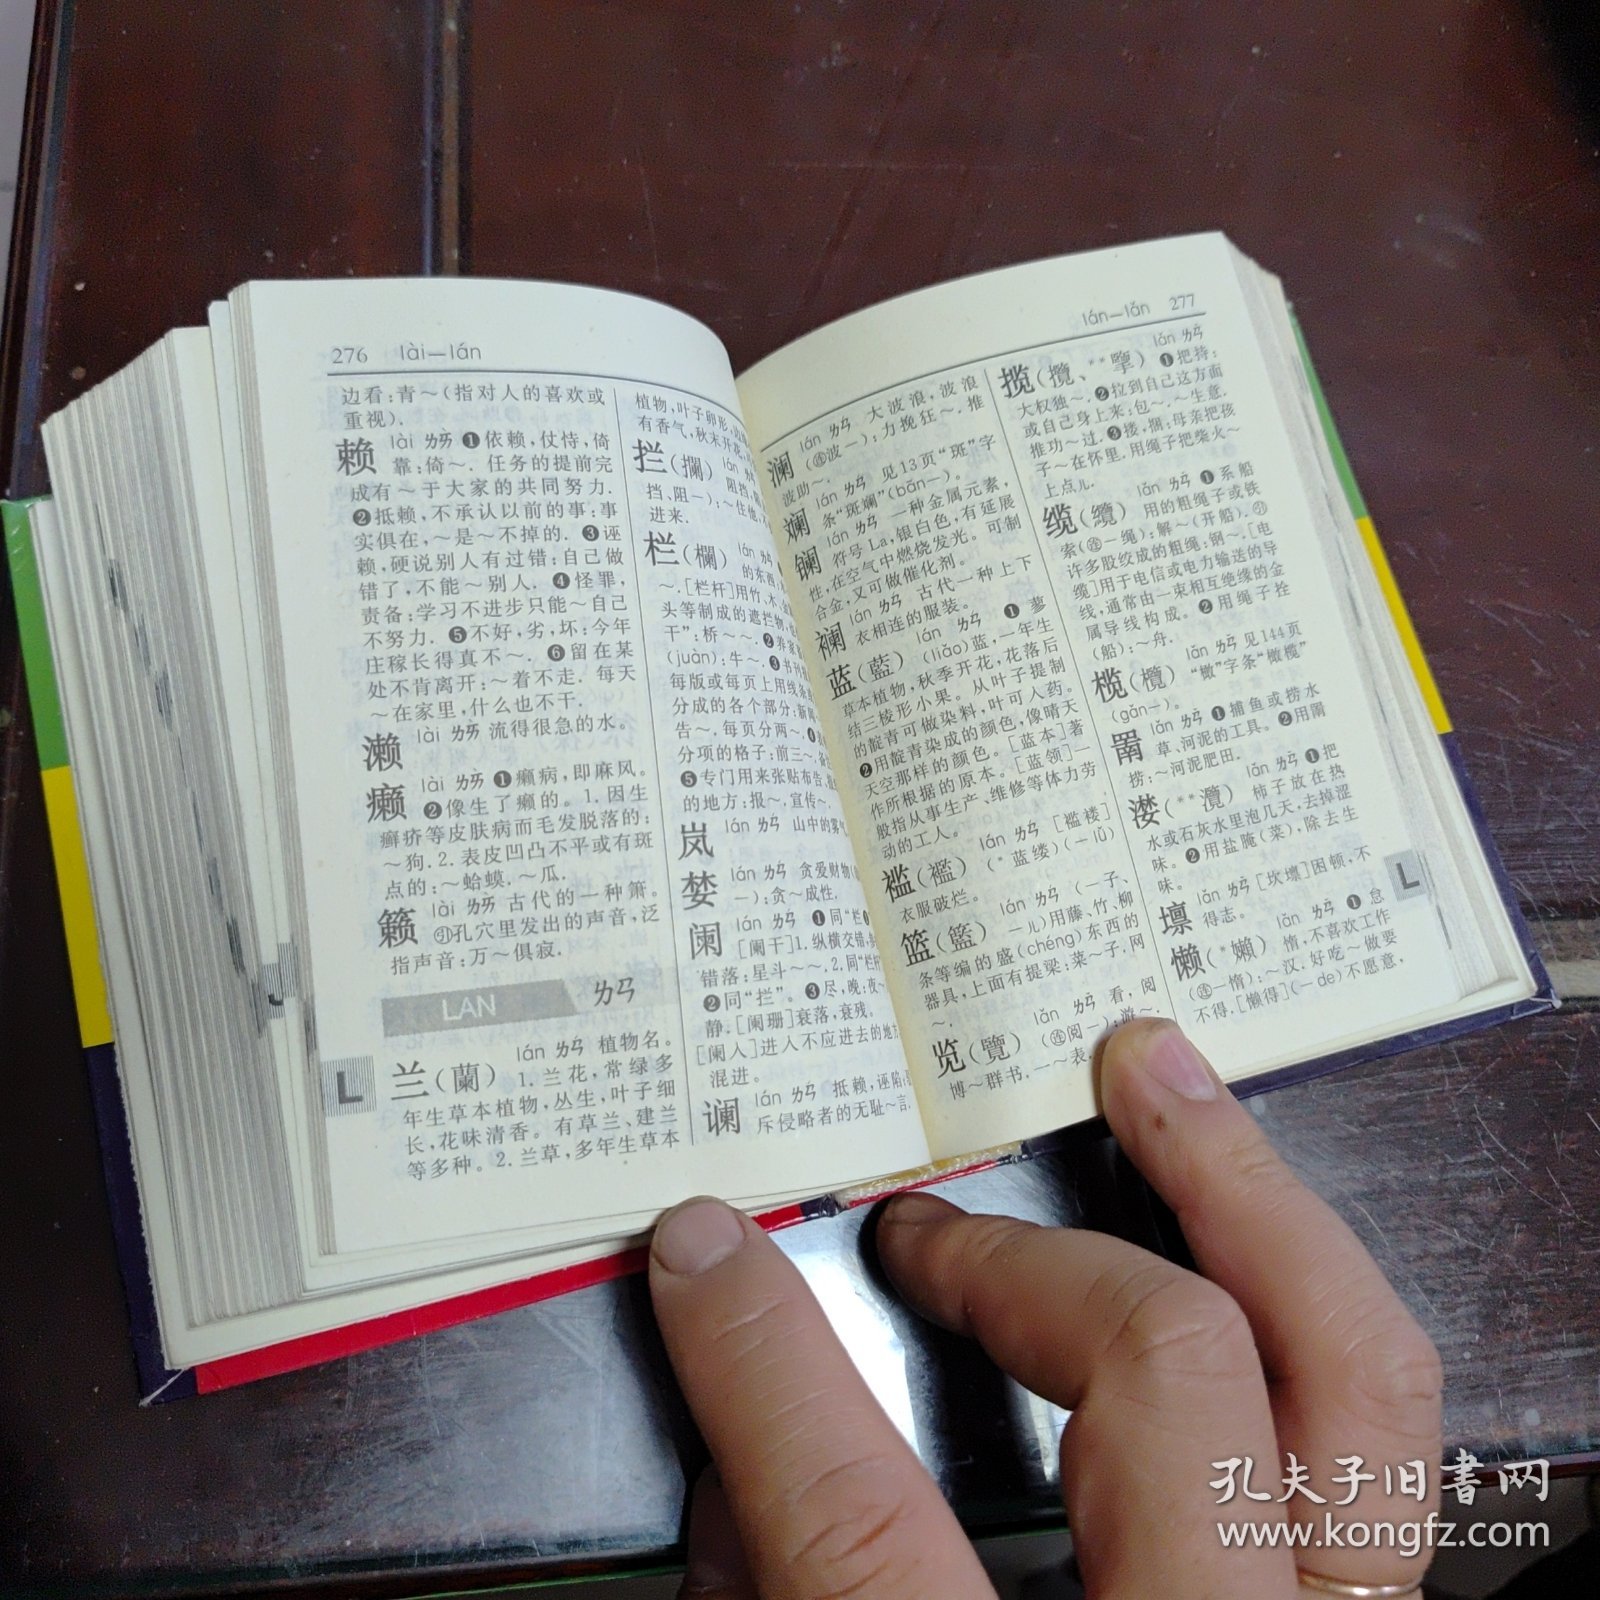 276 lài—lán
边看:青～(指对人的喜欢或
重视).
赖 lài ㄌㄞˋ ❶依赖,仗恃,倚
靠:倚～. 任务的提前完
成有～于大家的共同努力.
❷抵赖,不承认以前的事:事
实俱在,～是～不掉的. ❸诬
赖,硬说别人有过错:自己做
错了,不能～别人. ❹怪罪,
责备:学习不进步只能～自己
不努力. ❺不好,劣,坏:今年
庄稼长得真不～. ❻留在某
处不肯离开:～着不走. 每天
～在家里,什么也不干.
濑 lài ㄌㄞˋ 流得很急的水。
癞 lài ㄌㄞˋ ❶癞病,即麻风。
❷像生了癞的。1. 因生
癣疥等皮肤病而毛发脱落的:
～狗. 2. 表皮凹凸不平或有斑
点的:～蛤蟆.～瓜.
籁 lài ㄌㄞˋ 古代的一种箫。
㊁孔穴里发出的声音,泛
指声音:万～俱寂.
LAN ㄌㄢ
L
兰(蘭) lán ㄌㄢˊ 植物名。
1. 兰花,常绿多
年生草本植物,丛生,叶子细
长,花味清香。有草兰、建兰
等多种。2. 兰草,多年生草本
植物,叶子卵形,
有香气,秋末开花
拦(攔) lán
阻挡,
挡、阻—):～住他,
进来.
栏(欄) lán ㄌㄢˊ
的东西
～.[栏杆]用竹、木、
头等制成的遮拦物,
干":桥～～. ❷养家
(juàn):牛～. ❸书刊报
每版或每页上用线条
分成的各个部分:新闻
告～. 每页分两～.
分项的格子:前三～
❺专门用来张贴布告、
的地方:报～,宣传～.
岚 lán ㄌㄢˊ 山中的雾气
婪 lán ㄌㄢˊ 贪爱财物
—):贪～成性.
阑 lán ㄌㄢˊ ❶同"栏❶
[阑干]1. 纵横交错,
错落:星斗～～. 2. 同"栏杆
❷同"拦"。❸尽,晚:夜～
静.[阑珊]衰落,衰残。
[阑入]进入不应进去的地方
混进。
谰 lán ㄌㄢˊ 抵赖,诬陷:
斥侵略者的无耻～言.
lán—lǎn 277
澜 lán ㄌㄢˊ 大波浪,波浪
(㊣波—):力挽狂～. 推
波助～.
斓 lán ㄌㄢˊ 见13页"斑"字
条"斑斓"(bān—)。
镧 lán ㄌㄢˊ 一种金属元素,
符号La,银白色,有延展
性,在空气中燃烧发光。可制
合金,又可做催化剂。
襕 lán ㄌㄢˊ 古代一种上下
衣相连的服装。
蓝(藍) lán ㄌㄢˊ ❶ 蓼
(liǎo)蓝,一年生
草本植物,秋季开花,花落后
结三棱形小果。从叶子提制
的靛青可做染料,叶可入药。
❷用靛青染成的颜色,像晴天
天空那样的颜色。[蓝本]著
作所根据的原本。[蓝领]一
般指从事生产、维修等体力劳
动的工人。
褴(襤) lán ㄌㄢˊ [褴褛]
(*蓝缕)(—lǚ)
衣服破烂。
篮(籃) lán ㄌㄢˊ (—子、
—儿)用藤、竹、柳
条等编的盛(chéng)东西的
器具,上面有提梁:菜～子.网
～.
览(覽) lǎn ㄌㄢˇ 看,阅
(㊣阅—):游～.
博～群书.一～表.
揽(攬、**擥) lǎn ㄌㄢˇ ❶把持:
大权独～. ❷拉到自己这方面
或自己身上来:包～.～生意.
推功～过. ❸搂,捆:母亲把孩
子～在怀里. 用绳子把柴火～
上点儿.
缆(纜) lǎn ㄌㄢˇ ❶系船
用的粗绳子或铁
索(㊣—绳):解～(开船). ㊁
许多股绞成的粗绳:钢～.[电
缆]用于电信或电力输送的导
线,通常由一束相互绝缘的金
属导线构成。❷用绳子拴
(船):～舟.
榄(欖) lǎn ㄌㄢˇ 见144页
"橄"字条"橄榄"
(gǎn—)。
罱 lǎn ㄌㄢˇ ❶捕鱼或捞水
草、河泥的工具。❷用罱
捞:～河泥肥田.
漤(**灠) lǎn ㄌㄢˇ ❶把
柿子放在热
水或石灰水里泡几天,去掉涩
味。❷用盐腌(菜),除去生
味。
壈 lǎn ㄌㄢˇ[坎壈]困顿,不
得志。
懒(*嬾) lǎn ㄌㄢˇ ❶ 怠
惰,不喜欢工作
(㊣—惰):～汉. 好吃～做要
不得.[懒得](—de)不愿意,
L
孔夫子旧书网
www.kongfz.com